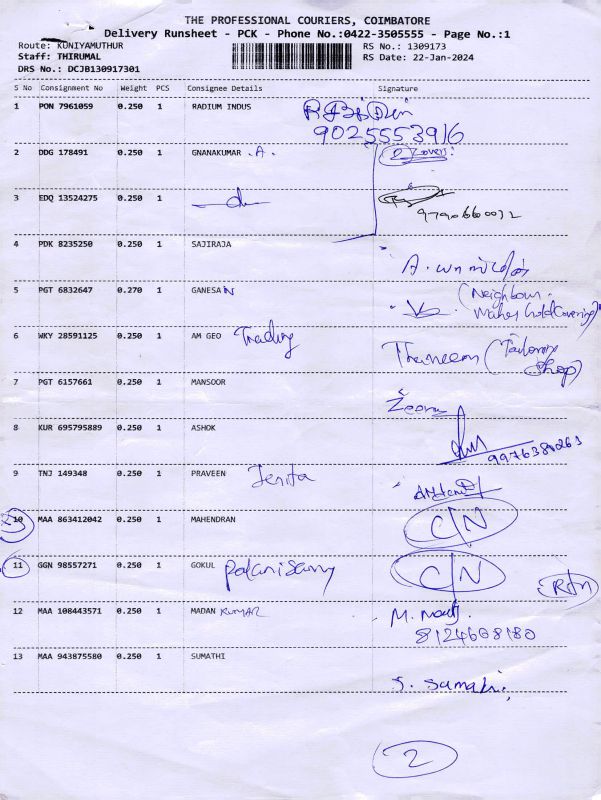 THE PROFESSIONAL COURIERS, COIMBATORE
Delivery Runsheet - PCK - Phone No.:0422-3505555 - Page No.:1
Route: KUNIYAMUTHUR RS No.: 1309173
Staff: THIRUMAL RS Date: 22-Jan-2024
DRS No.: DCJB130917301
S No Consignment No Weight PCS Consignee Details Signature
1 PON 7961059 0.250 1 RADIUM INDUS
9025553916
2 DDG 178491 0.250 1 GNANAKUMAR .A. 2 Covers
3 EDQ 13524275 0.250 1
9790660032
4 PDK 8235250 0.250 1 SAJIRAJA
5 PGT 6832647 0.270 1 GANESAN (Neighbour.
Mahes Gold Covering)
6 WKY 28591125 0.250 1 AM GEO Trading
Thaneem (Tailoring
Shop)
7 PGT 6157661 0.250 1 MANSOOR
8 KUR 695795889 0.250 1 ASHOK
9 TNJ 149348 0.250 1 PRAVEEN Jenita
10 MAA 863412042 0.250 1 MAHENDRAN C/N
11 GGN 98557271 0.250 1 GOKUL Palanisamy C/N
Rtn
12 MAA 108443571 0.250 1 MADAN KUMAR
8124608180
13 MAA 943875580 0.250 1 SUMATHI
S. Sumathi
2